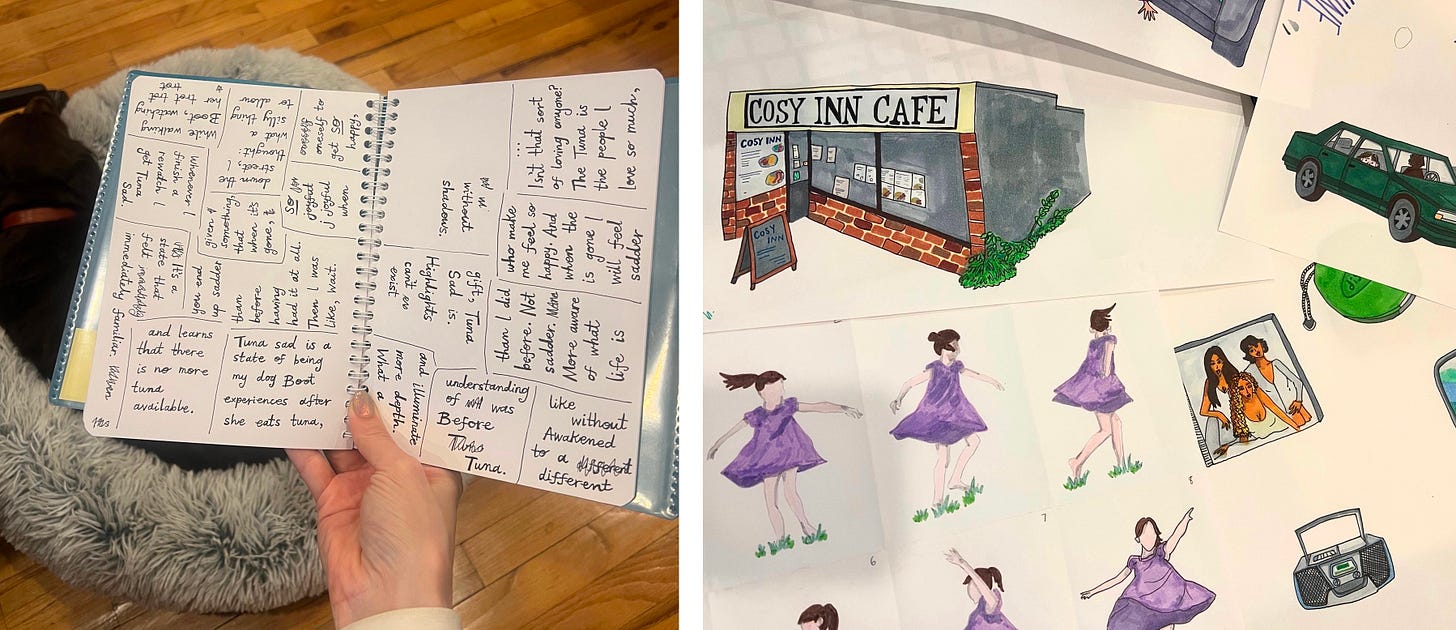 Tuna sad is a
state of being
my dog Boot
experiences after
she eats tuna,
and learns
that there
is no more
tuna
available.
Whenever I
finish a
rewatch I
get Tuna
Sad
it's a
state that
felt
immediately familiar. When
While walking
Boot, watching
her trot trot
trot
down the
street, I
thought:
what a
silly thing
to allow
oneself to
get so
happy,
so
joyful
joyful
when
given
something,
that
when it's
gone,
you end
up sadder
than
before
having
had it at all.
Then I was
like, wait.
Isn't that sort
of loving anyone?
The Tuna is
the people I
love so much,
who make
me feel so
happy. And
when the
is gone I
will feel
sadder
than I did
before. Not
sadder. More
More aware
of what
life is
like
without
Awakened
to a different
different
understanding
of was
Before
Tuna.
What a
gift, Tuna
Sad is.
Highlights
can't ex
exist
without
shadows.
and illuminate
more depth.
COSY INN CAFE
COSY INN
COSY
INN
6
7
8